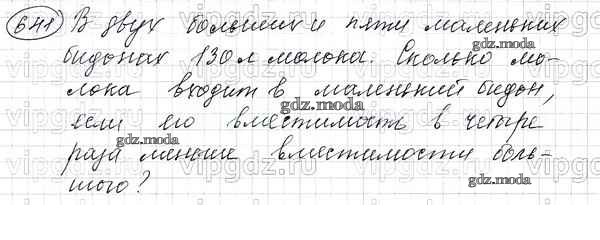 641) В двух больших и пяти маленьких
бидонах 130 л молока. Сколько мо-
лока входит в маленький бидон,
если его вместимость в четыре
раза меньше вместимости боль-
шого?
gdz.moda
gdz.moda
gdz.moda
gdz.moda